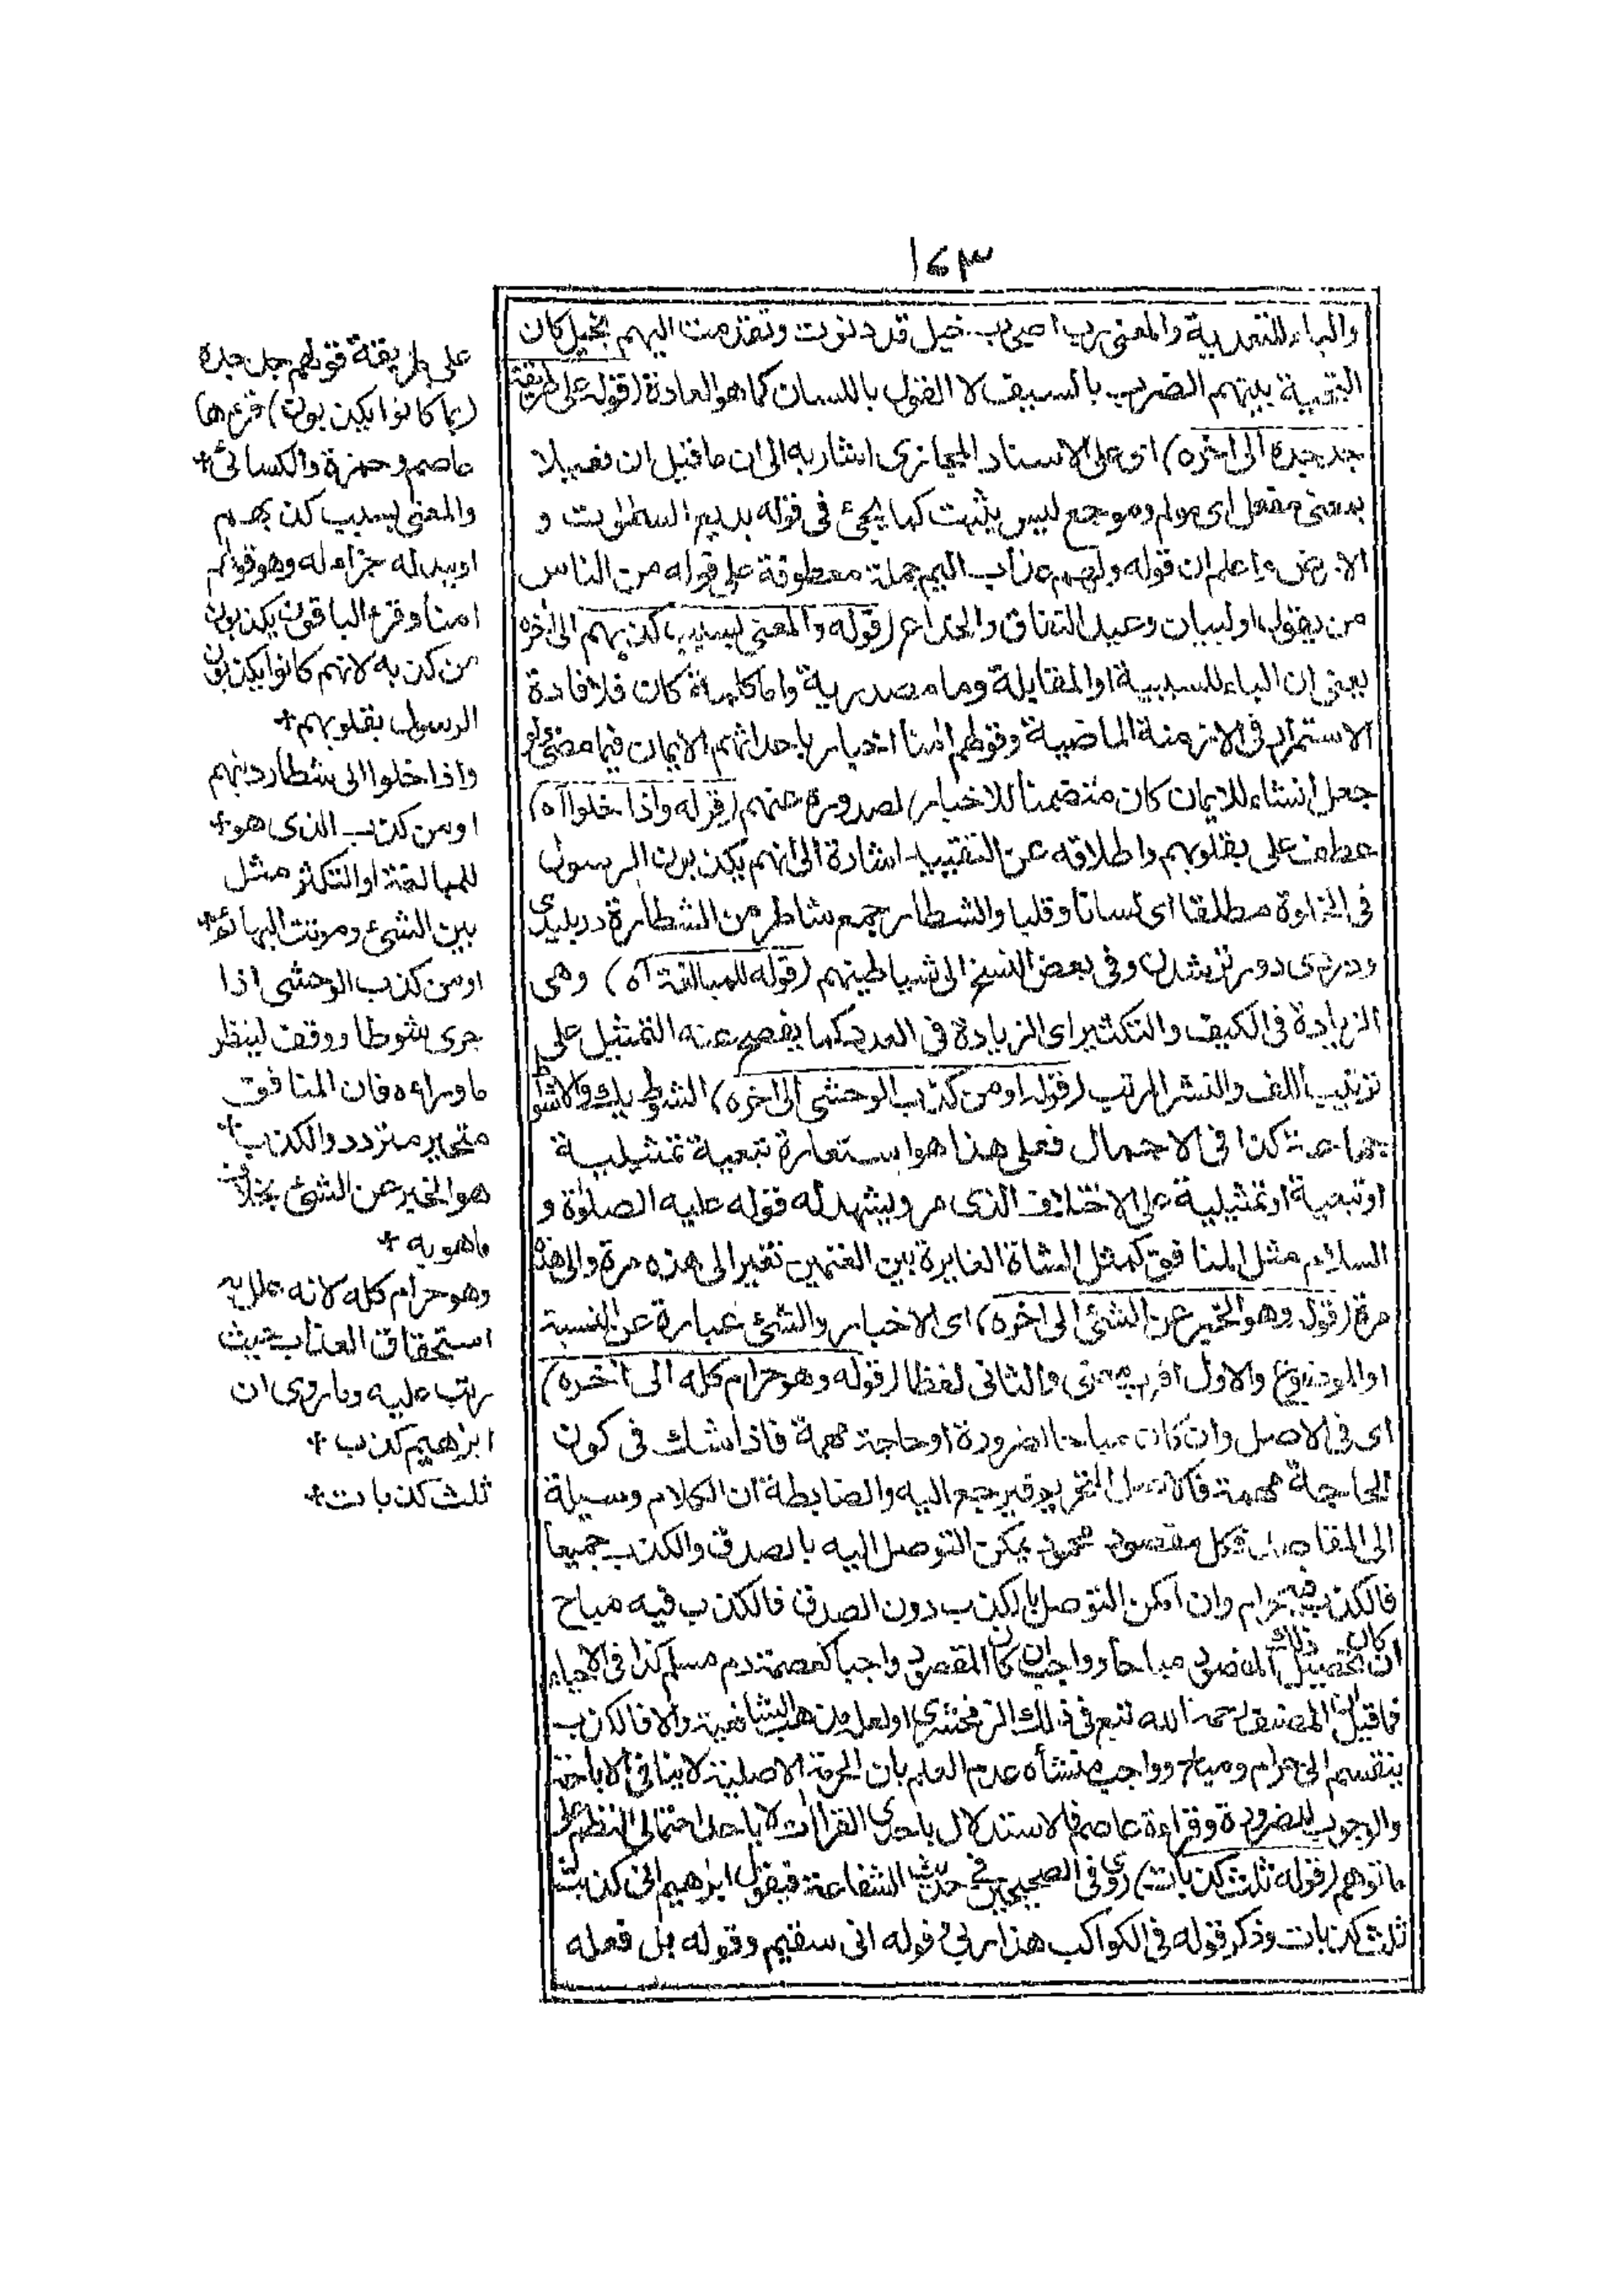 ١٤٣
والباء للتعدية والمعنى رب اصحاب خيل قد دنوت وتقدمت اليهم بخيل كان
التحية بينهم الضرب بالسيف لا القول باللسان كما هو العادة (قوله على طريقة
جد جده الى اخره) اى على الاسناد المجازى اشار به الى ان ما قيل ان فعيلا
بمعنى مفعل اى مولم وموجع ليس بثبت كما يجئ فى قوله بديع السموت و
الارض واعلم ان قوله ولهم عذاب اليم جملة معطوفة على قوله من الناس
من يقول او لبيان وعيد النفاق والخداع (قوله والمعنى بسبب كذبهم الى اخره
يعنى ان الباء للسببية او المقابلة وما مصدرية واما كلمة كان فلافادة
الاستمرار فى الازمنة الماضية وقولهم امنا اخبار باحداثهم الايمان فيما مضى ولو
جعل انشاء للايمان كان متضمنا للاخبار لصدوره عنهم (قوله واذا خلوا آه)
عطف على بقلوبهم واطلاقه عن التقييد اشارة الى انهم يكذبون الرسول
فى الخلوة مطلقا اى لسانا وقلبا والشطار جمع شاطر من الشطارة دربليدى
ودزدى دور تر شدن وفى بعض النسخ الى شياطينهم (قوله للمبالغة آه) وهى
الزيادة فى الكيف والتكثير اى الزيادة فى العدد كما يفصح عنه التمثيل على
ترتيب اللف والنشر المرتب (قوله او من كذب الوحشى الى اخره) الشوط يك والاشواط
جماعة كذا فى الاجمال فعلى هذا هو استعارة تبعية تمثيلية
او تبعية او تمثيلية على الاختلاف الذى مر ويشهد له قوله عليه الصلوة و
السلام مثل المنافق كمثل الشاة العايرة بين الغنمين تعير الى هذه مرة والى هذه
مرة (قوله وهو الخبر عن الشئ الى اخره) اى الاخبار والشئ عبارة عن النسبة
او الموضوع والاول اقرب معنى والثانى لفظا (قوله وهو حرام كله الى اخره)
اى فى الاصل وان كان مباحا لضرورة او حاجة مهمة فاذا شك فى كون
الحاجة مهمة فالاصل التحريم فيرجع اليه والضابطة ان الكلام وسيلة
الى المقاصد فكل مقصود محمود يمكن التوصل اليه بالصدق والكذب جميعا
فالكذب فيه حرام وان امكن التوصل بالكذب دون الصدق فالكذب فيه مباح
ان كان تحصيل ذلك المقصود مباحا وواجب ان كان المقصود واجبا كعصمة دم مسلم كذا فى الاحياء
فما قيل ان المصنف رحمه الله تبع فى ذلك الزمخشرى او لعله مذهب الشافعية والا فالكذب
ينقسم الى حرام ومباح وواجب منشأه عدم العلم بان الحرمة الاصلية لا ينافى الاباحة
والوجوب للضرورة وقراءة عاصم فالاستدلال باحدى القراات لا باحد احتمالى النظم على
ما توهم (قوله ثلث كذبات) روى فى الصحيحين فى حديث الشفاعة فيقول ابرهيم انى كذبت
ثلث كذبات وذكر قوله فى الكواكب هذا ربى وقوله انى سقيم وقوله بل فعله
على طريقة قولهم جد جده
(بما كانوا يكذبون) قرءها
عاصم وحمزة والكسائى*
والمعنى بسبب كذبهم
او ببدله جزاء له وهو قولهم
امنا وقرء الباقون يكذبون
من كذبه لانهم كانوا يكذبون
الرسول بقلوبهم*
واذا خلوا الى شطار دينهم
او من كذب الذى هو*
للمبالغة او التكثر مثل
بين الشئ وموتت البهائم*
او من كذب الوحشى اذا
جرى شوطا ووقف لينظر
ما وراءه فان المنافق
متحير متردد والكذب*
هو الخبر عن الشئ بخلاف
ما هو به *
وهو حرام كله لانه علل به
استحقاق العذاب حيث
رتب عليه وما روى ان
ابرهيم كذب *
ثلث كذبات*